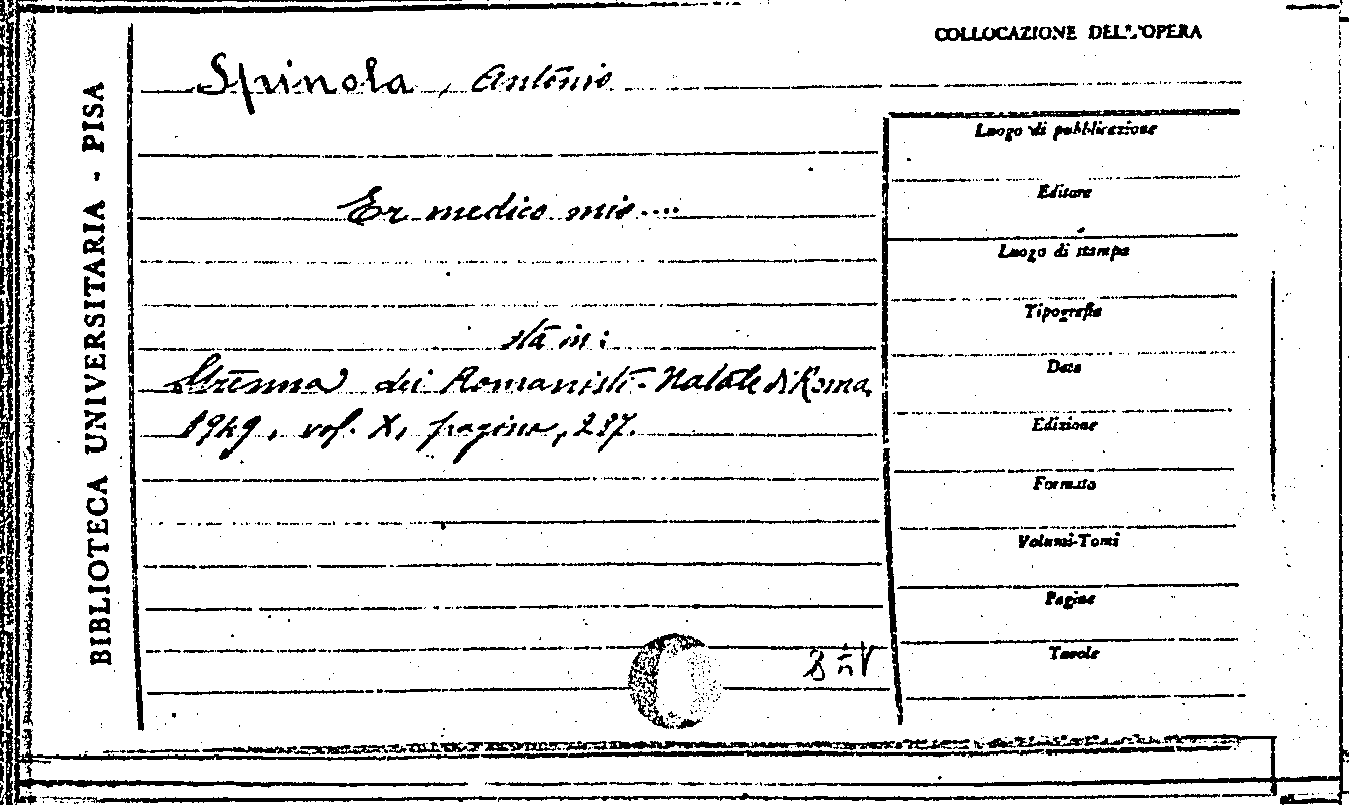 BIBLIOTECA UNIVERSITARIA - PISA
COLLOCAZIONE DELL'OPERA
Spinola, Antonio
Er medico mio....
sta in:
Strenna dei Romanisti - Natale di Roma,
1949, vol. X, pagina, 237.
Luogo di pubblicazione
Editore
Luogo di stampa
Tipografia
Data
Edizione
Formato
Volumi-Tomi
Pagine
Tavole